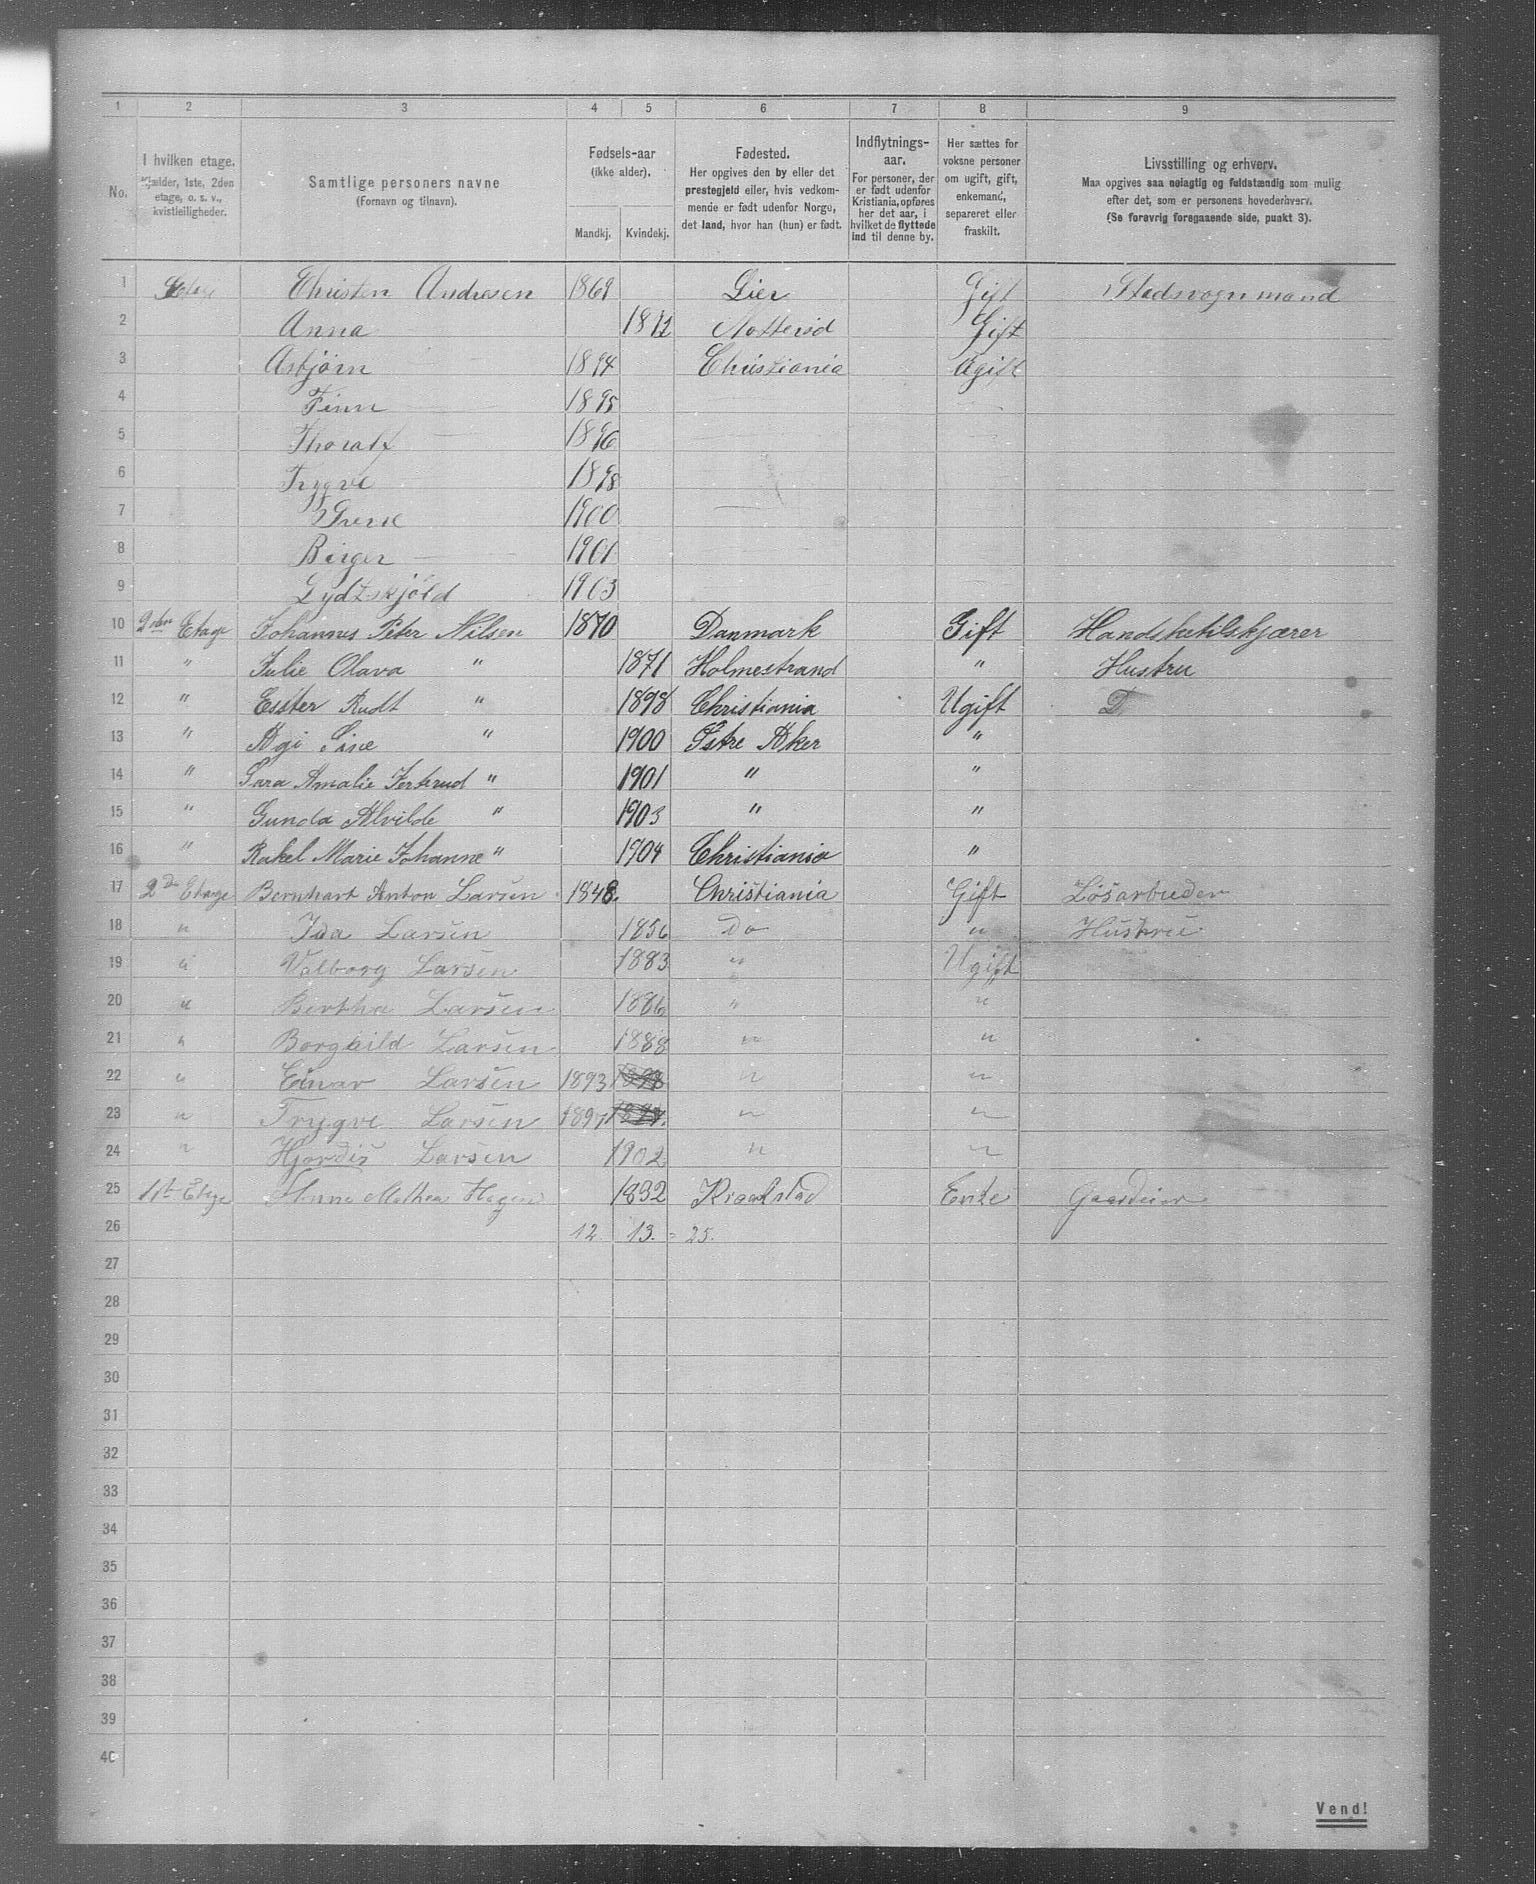 1 2 3 4 5 6 7 8 9
No.
I hvilken etage.
Kjælder, 1ste, 2den
etage, o. s. v.,
kvistleiligheder.
Samtlige personers navne
(Fornavn og tilnavn).
Fødsels-aar
(ikke alder).
Mandkj. Kvindekj.
Fødested.
Her opgives den by eller det
prestegjeld eller, hvis vedkom-
mende er født udenfor Norge,
det land, hvor han (hun) er født.
Indflytnings-
aar.
For personer, der
er født udenfor
Kristiania, opføres
her det aar, i
hvilket de flyttede
ind til denne by.
Her sættes for
voksne personer
om ugift, gift,
enkemand,
separeret eller
fraskilt.
Livsstilling og erhverv.
Maa opgives saa nøiagtig og fuldstændig som mulig
efter det, som er personens hovederhverv.
(Se forøvrig foregaaende side, punkt 3).
1 Christen Andresen 1869 Lier Gift Stadsvognmand
2 Anna Notterød Gift
3 Asbjørn 1894 Christiania Ugift
4 Finn 1895
5 Thoralf 1896
6 Trygve 1898
7 1900
8 Birger 1901
9 Lydtskjöld 1903
10 2den Etage Johannes Peter Nilsen 1870 Danmark Gift Handsketilskjærer
11 " Julie Olava " 1871 Holmestrand " Hustru
12 " Esster Rudt " 1898 Christiania Ugift D
13 " Agi Sine " 1900 Østre Aker "
14 " Sara Amalie Jertrud " 1901 " "
15 " Gunda Alvilde " 1903 " "
16 " Rakel Marie Johanne " 1904 Christiania "
17 2de Etage Bernhart Anton Larsen 1848. Christiania Gift Løsarbeider
18 " Ida Larsen 1856 Do " Hustru
19 " Valborg Larsen 1883 " Ugift
20 " Bertha Larsen 1886 " "
21 " Borghild Larsen 1888 " "
22 " Einar Larsen 1893 " "
23 " Trygve Larsen 1897 " "
24 " Hjordis Larsen 1902 " "
25 1st Etage Anne Mathea Hagen 1832 Kraakstad Enke
26 12. 13. = 25.
27
28
29
30
31
32
33
34
35
36
37
38
39
40
Vend!